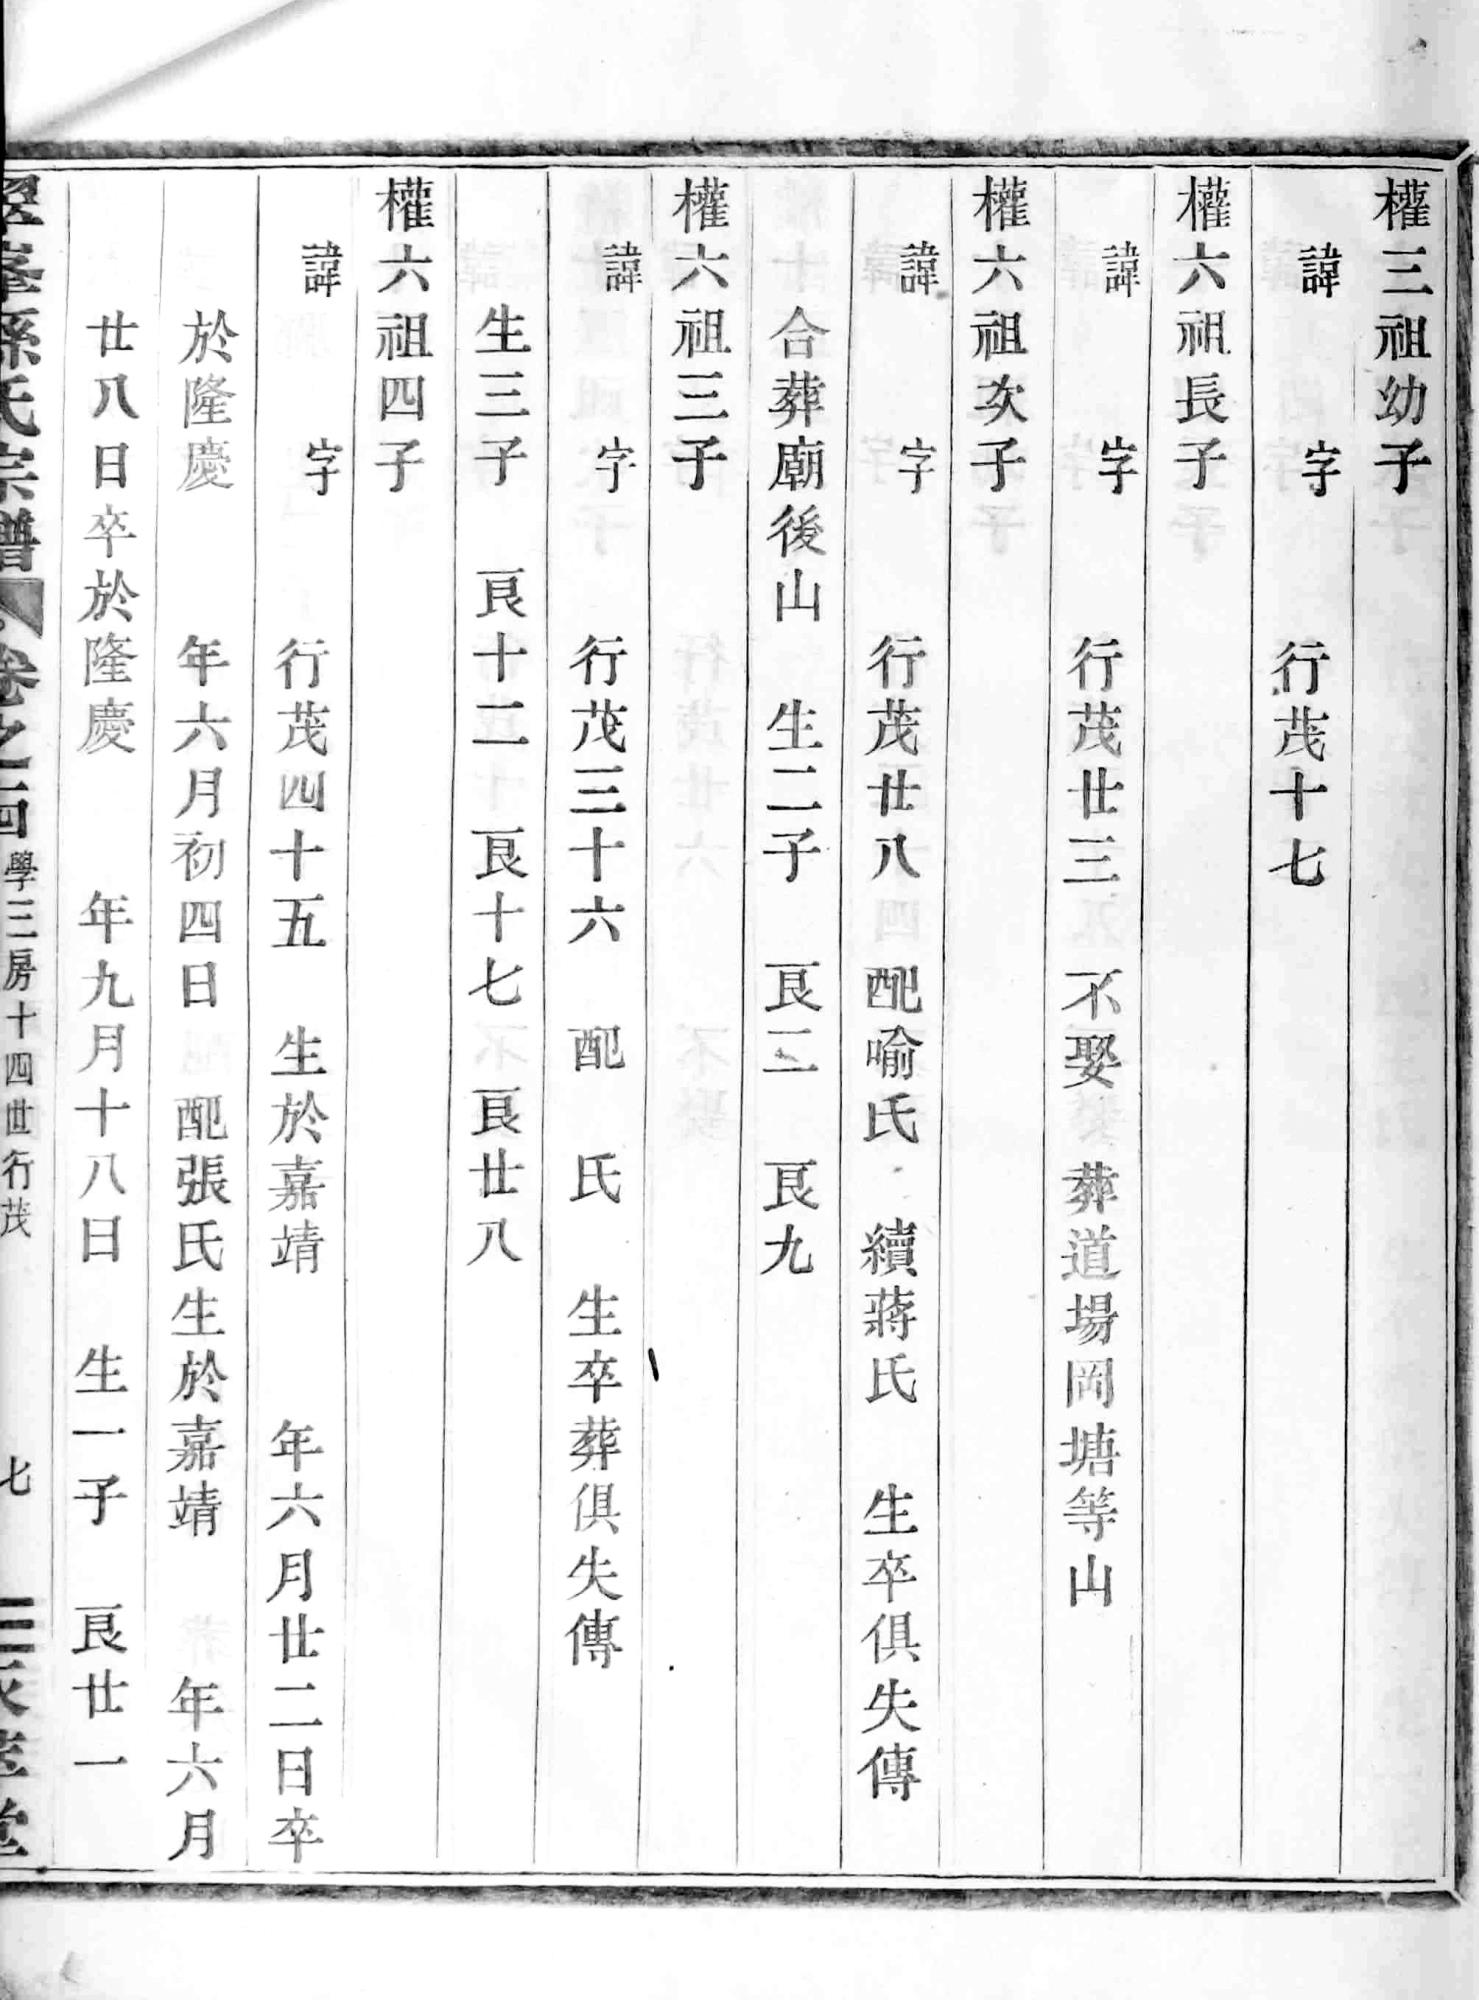 權三祖幼子
諱 字 行茂十七
權六祖長子
諱 字 行茂廿三 不娶 葬道場岡塘等山
權六祖次子
諱 字 行茂廿八 配喻氏 續蔣氏 生卒俱失傳
合葬廟後山 生二子 艮二 艮九
權六祖三子
諱 字 行茂三十六 配 氏 生卒葬俱失傳
生三子 艮十二 艮十七 艮廿八
權六祖四子
諱 字 行茂四十五 生於嘉靖 年六月廿二日卒
於隆慶 年六月初四日 配張氏生於嘉靖 年六月
廿八日卒於隆慶 年九月十八日 生一子 艮廿一
孫氏宗譜 卷之四 學三房十四世行茂 七 堂